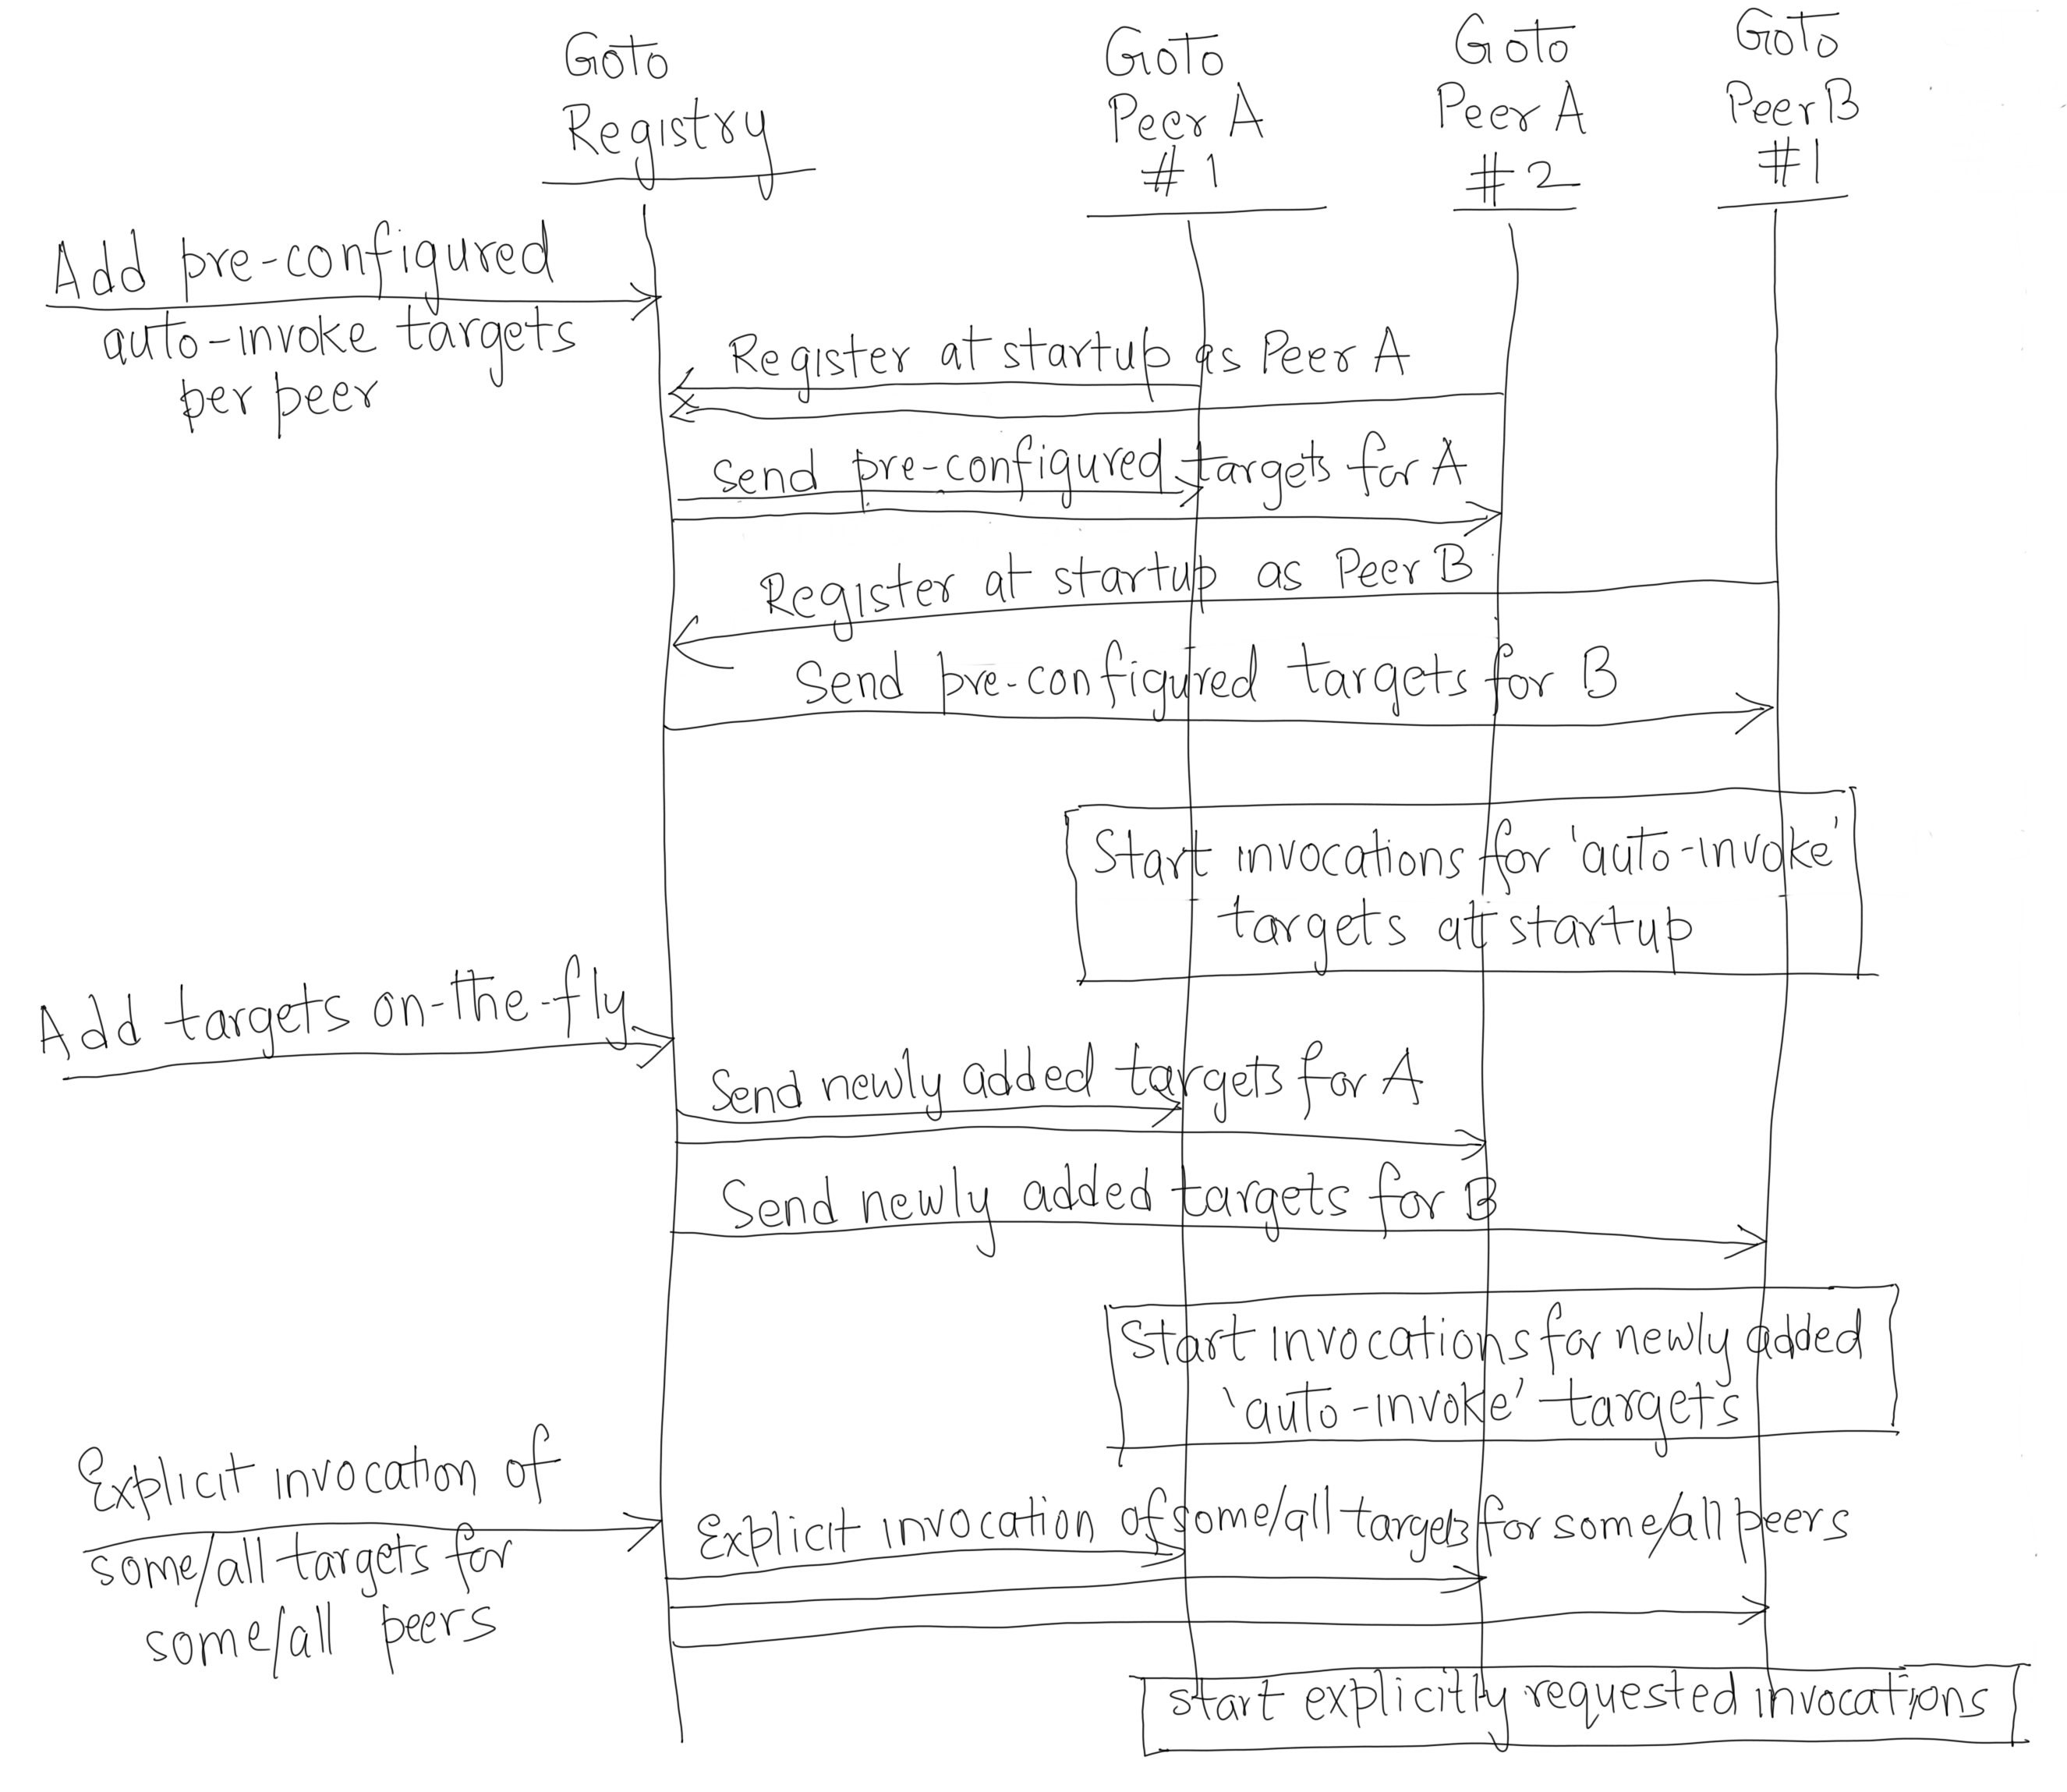 Goto
Registry
Goto
Peer A
#1
Goto
Peer A
#2
Goto
Peer B
#1
Add pre-configured
auto-invoke targets
per peer
Register at startup as Peer A
Send pre-configured targets for A
Register at startup as Peer B
Send pre-configured targets for B
Start invocations for 'auto-invoke'
targets at startup
Add targets on-the-fly
Send newly added targets for A
Send newly added targets for B
Start invocations for newly added
'auto-invoke' targets
Explicit invocation of
some/all targets for
some/all peers
Explicit invocation of some/all targets for some/all peers
start explicitly requested invocations